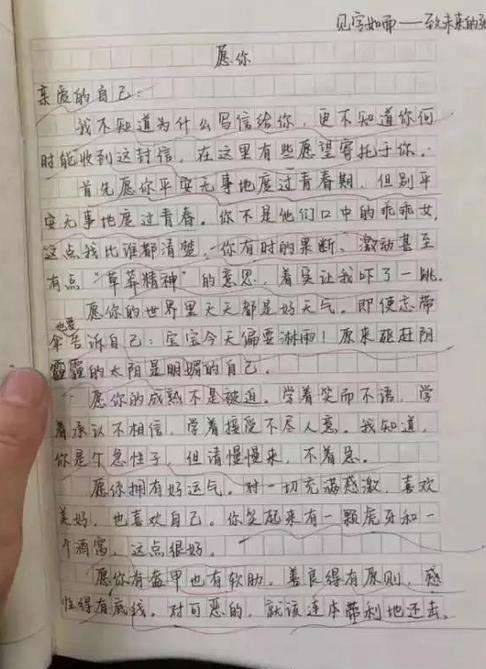 见字如面——致未来的
愿你
亲爱的自己：
我不知道为什么写信给你，更不知道你何
时能收到这封信，在这里有些愿望寄托于你。
首先愿你平安无事地度过青春期，但别平
安无事地度过青春。你不是他们口中的乖乖女，
这点我比谁都清楚，你有时的果断、激动甚至
有点“草莽精神”的意思，着实让我吓了一跳。
愿你的世界里天天都是好天气。即使忘带
伞也要告诉自己：宝宝今天偏要淋雨！原来驱赶阴
霾的太阳是明媚的自己。
愿你的成熟不是被迫。学着笑而不语，学
着承认不相信，学着接受不尽人意。我知道，
你是个急性子，但请慢慢来，不着急。
愿你拥有好运气。对一切充满感激，喜欢
美好，也喜欢自己。你笑起来有一颗虎牙和一
个酒窝，这点很好。
愿你有盔甲也有软肋。善良得有原则，感
性得有底线。对可恶的，就该连本带利地还去。